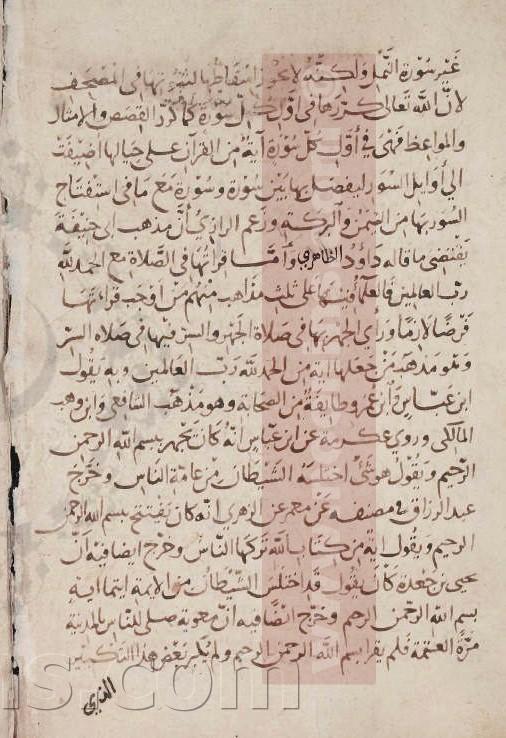 غير سورة النمل ولكنه لا يجوز اسقاطها لثبوتها في المصحف
لان الله تعالى كررها في اول كل سورة كما كرر القصص والامثال
والمواعظ فهى في اول كل سورة آية من القرآن على حيالها اضيفت
الى أوايل السور ليفصل بها بين سورة وسورة مع ما في استفتاح
السور بها من التيمن والبركة وزعم الرازي أن مذهب ابى حنيفة
يقتضى ما قاله داؤد الظاهري وأمّا قرائتها في الصّلاة مع الحمد لله
ربّ العالمين فالعلماء فيها على ثلث مذاهب منهم من اوجب قرائتها
فرضًا لازمًا وراى الجهر بها في صلاة الجهر والسر فيها في صلاه السر
وهو مذهب من جعلها اية من الحمد لله ربّ العالمين وبه يقول
ابن عبّاس وابن عمر وطايفة من الصحابة وهو مذهب الشافعى وابن وهب
المالكى وروي عكرمة عن ابن عباس انّه كان يجهر ببسم الله الرحمن
الرّحيم ويقول هو شئ اختلسه الشيطان من عامة الناس وخرّج
عبد الرزاق في مصنفه عن معمر عن الزهري انه كان يفتتح ببسم الله الرحمن
الرحيم ويقول اية من كتاب الله تركها النّاس وخرج ايضا فيه أنّ
يحيى بن جعدة كان يقول قد اختلس الشيطان من الايمة ايتما اية
بسم الله الرحمن الرحيم وخرج ايضًا فيه انّ معوية صلى للناس بالمدينة
مرّة العتمة فلم يقرا بسم الله الرحمن الرحيم ولم يكبر بعض هذا التكبير
الذي
s.com